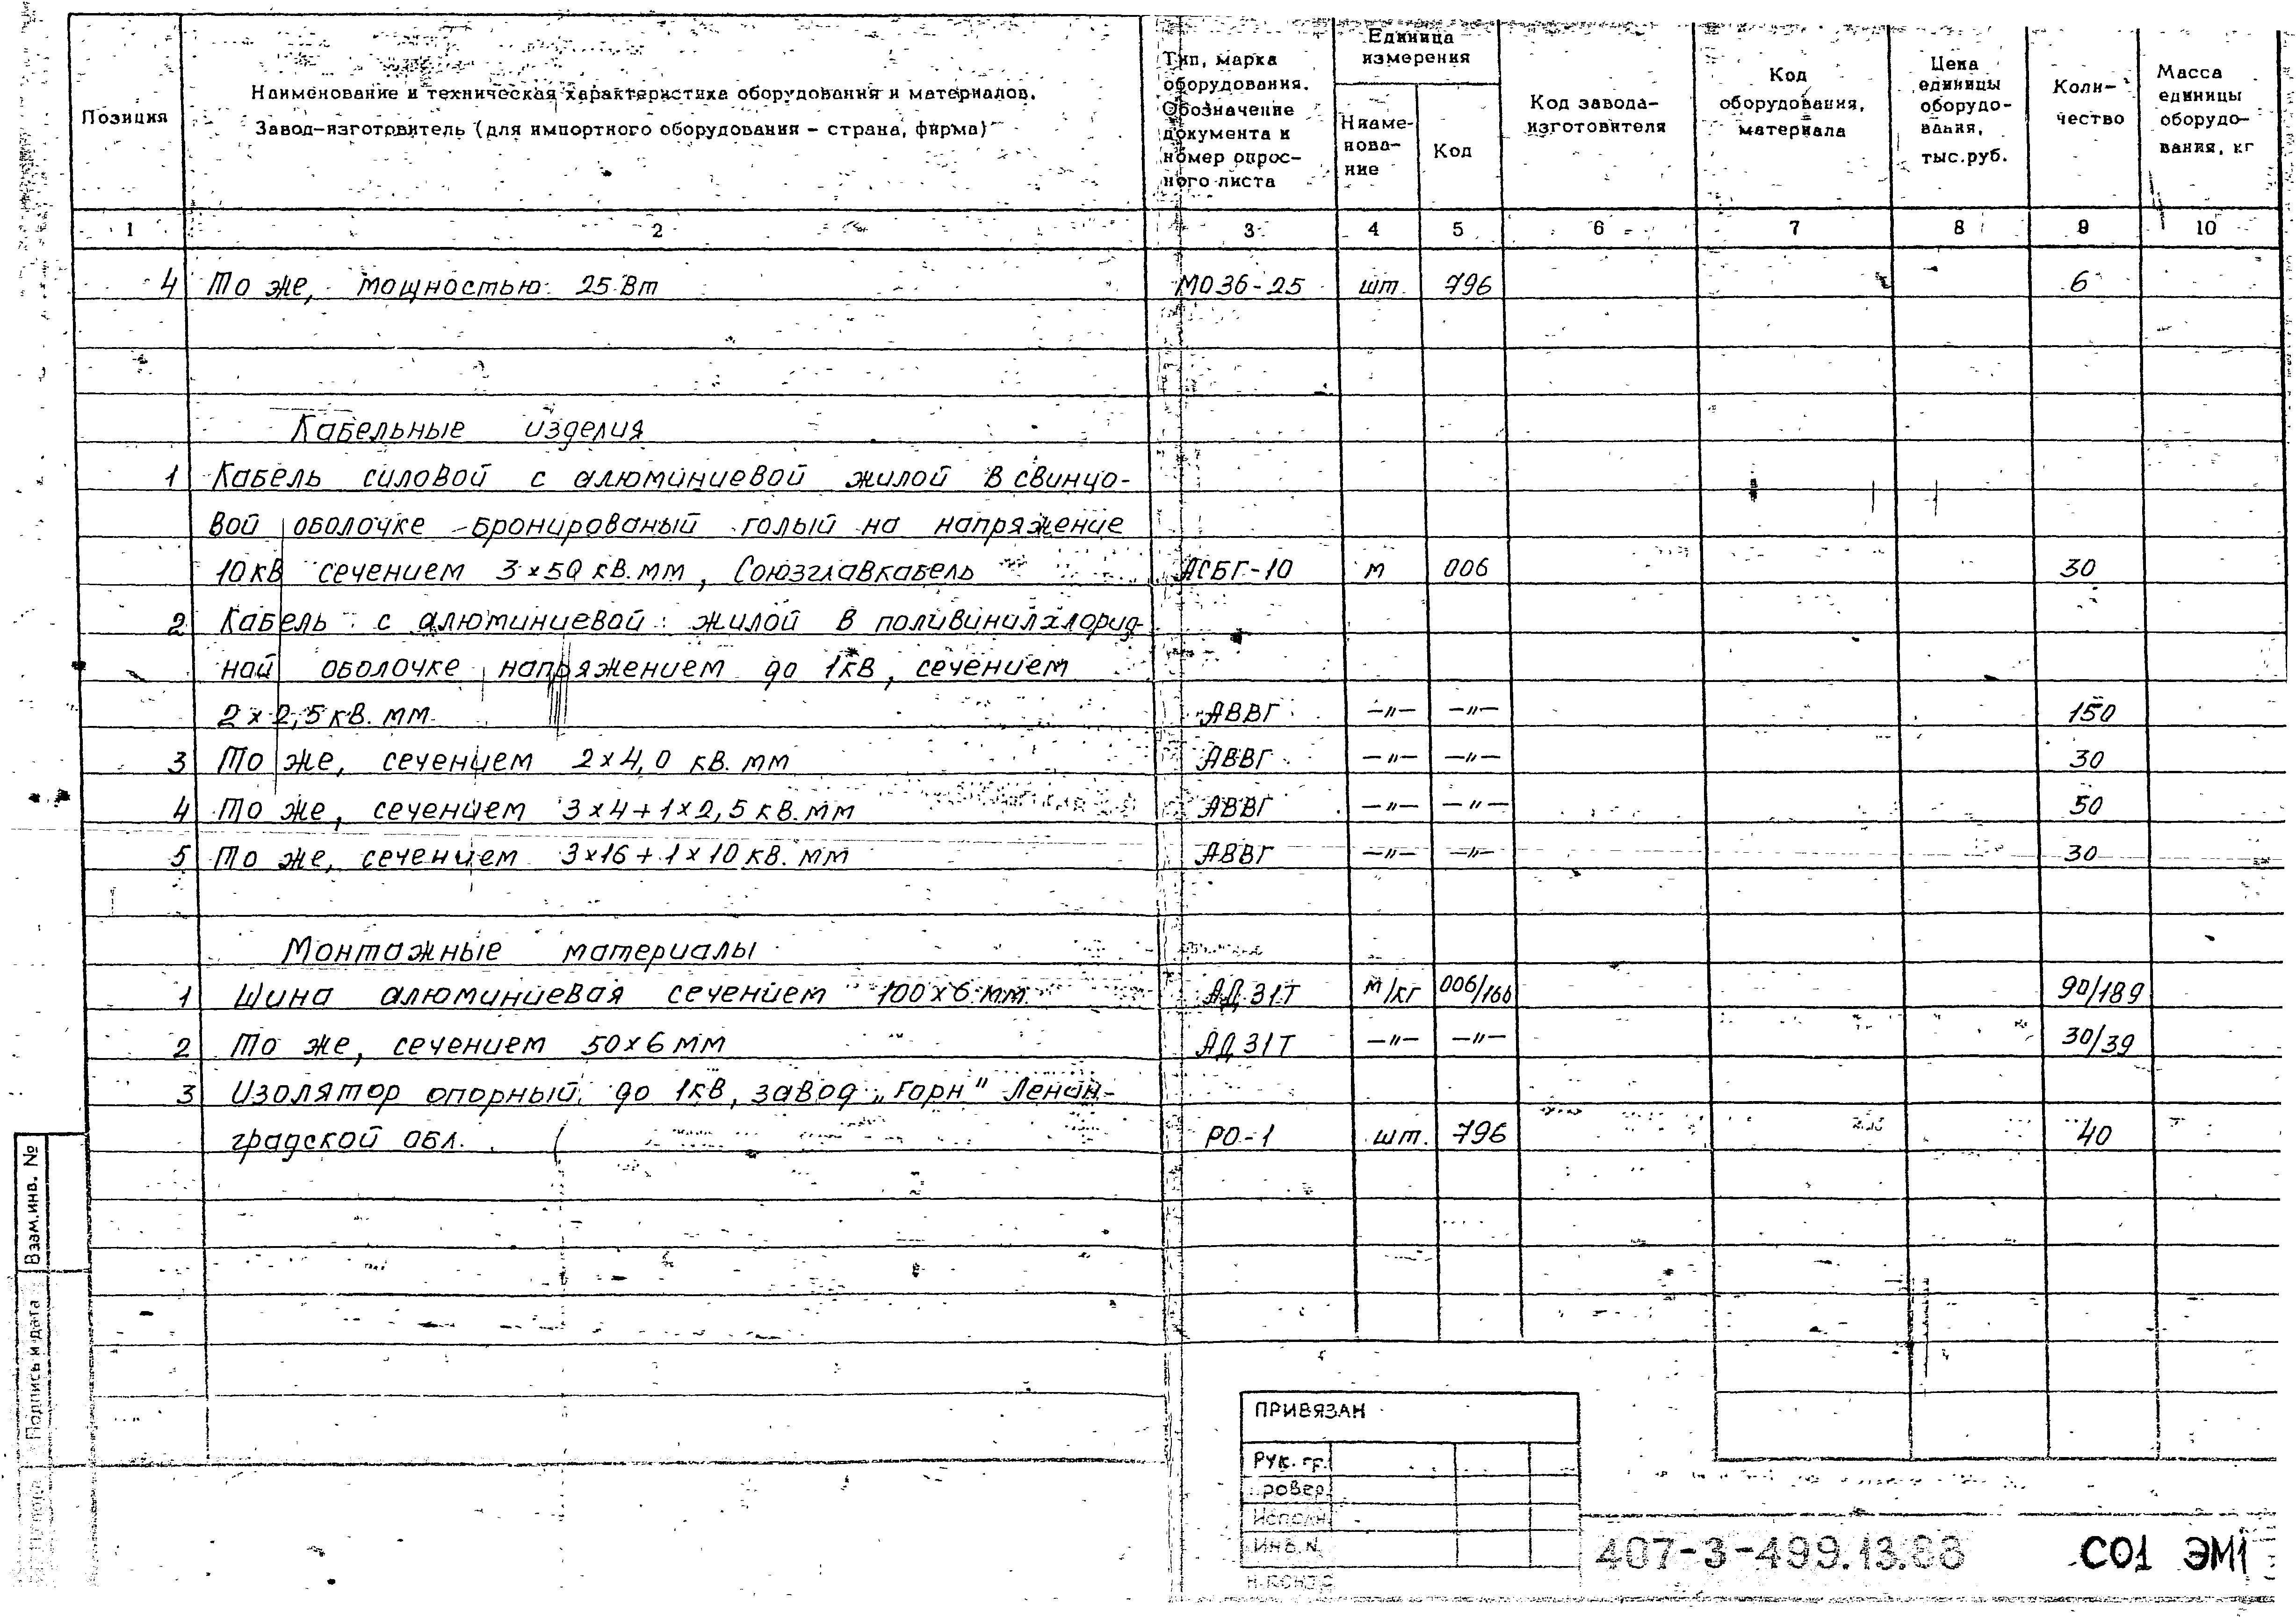 Позиция
Наименование и техническая характеристика оборудования и материалов.
Завод-изготовитель (для импортного оборудования - страна, фирма)
Тип, марка
оборудования.
Обозначение
документа и
номер опрос-
ного листа
Единица
измерения
Наиме-
нова-
ние
Код
Код завода-
изготовителя
Код
оборудования,
материала
Цена
единицы
оборудо-
вания,
тыс.руб.
Коли-
чество
Масса
единицы
оборудо-
вания, кг
1 2 3 4 5 6 7 8 9 10
4 То же, мощностью 25 Вт МО36-25 шт. 796 6
Кабельные изделия
1 Кабель силовой с алюминиевой жилой в свинцо-
вой оболочке бронированый голый на напряжение
10кв сечением 3×50 кв.мм, Союзглавкабель АСБГ-10 м 006 30
2 Кабель с алюминиевой жилой в поливинилхлорид-
ной оболочке напряжением до 1кв, сечением
2×2,5 кв. мм АВВГ —〃— —〃— 150
3 То же, сечением 2×4,0 кв. мм АВВГ —〃— —〃— 30
4 То же, сечением 3×4+1×2,5 кв. мм АВВГ —〃— —〃— 50
5 То же, сечением 3×16+1×10 кв. мм АВВГ —〃— —〃— 30
Монтажные материалы
1 Шина алюминиевая сечением 100×6 мм АД 31Т м/кг 006/166 90/189
2 То же, сечением 50×6 мм АД 31Т —〃— —〃— 30/39
3 Изолятор опорный до 1кв, завод „Горн" Ленин-
градской обл. РО-1 шт. 796 40
Взам.инв. №
Подпись и дата
ПРИВЯЗАН
Рук. гр.
ровер.
Исполн.
Инв.N
Н.контр
407-3-499.13.88 СО1 ЭМ1